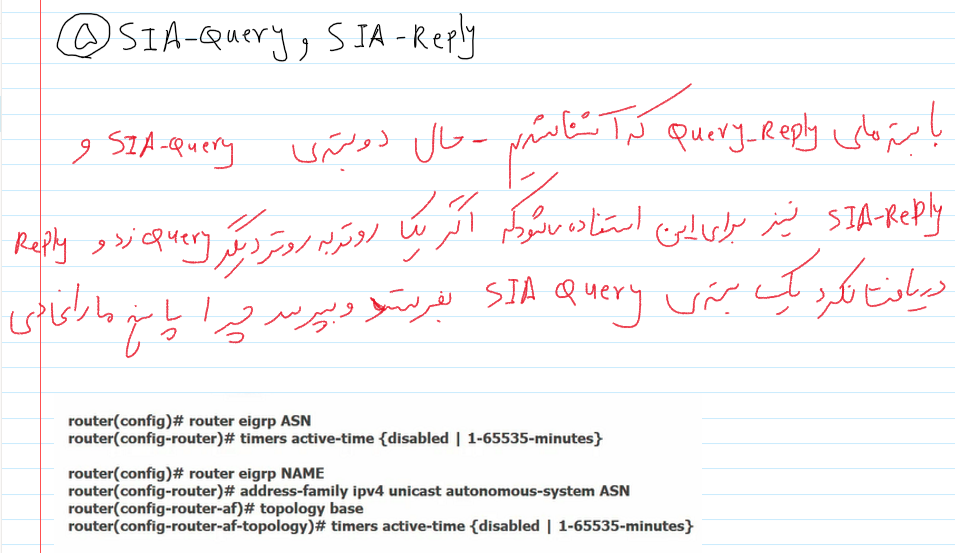 ۵ SIA-Query و SIA-Reply
با بسته های Query_Reply که آشنا شدیم - حال دو بسته ی SIA-Query و
SIA-Reply نیز برای این استفاده می شود که اگر یک روتر به روتر دیگر Query زد و Reply
دریافت نکرد یک بسته ی SIA Query بفرستد و بپرسد چرا پاسخ ما را نمی دی
router(config)# router eigrp ASN
router(config-router)# timers active-time {disabled | 1-65535-minutes}
router(config)# router eigrp NAME
router(config-router)# address-family ipv4 unicast autonomous-system ASN
router(config-router-af)# topology base
router(config-router-af-topology)# timers active-time {disabled | 1-65535-minutes}